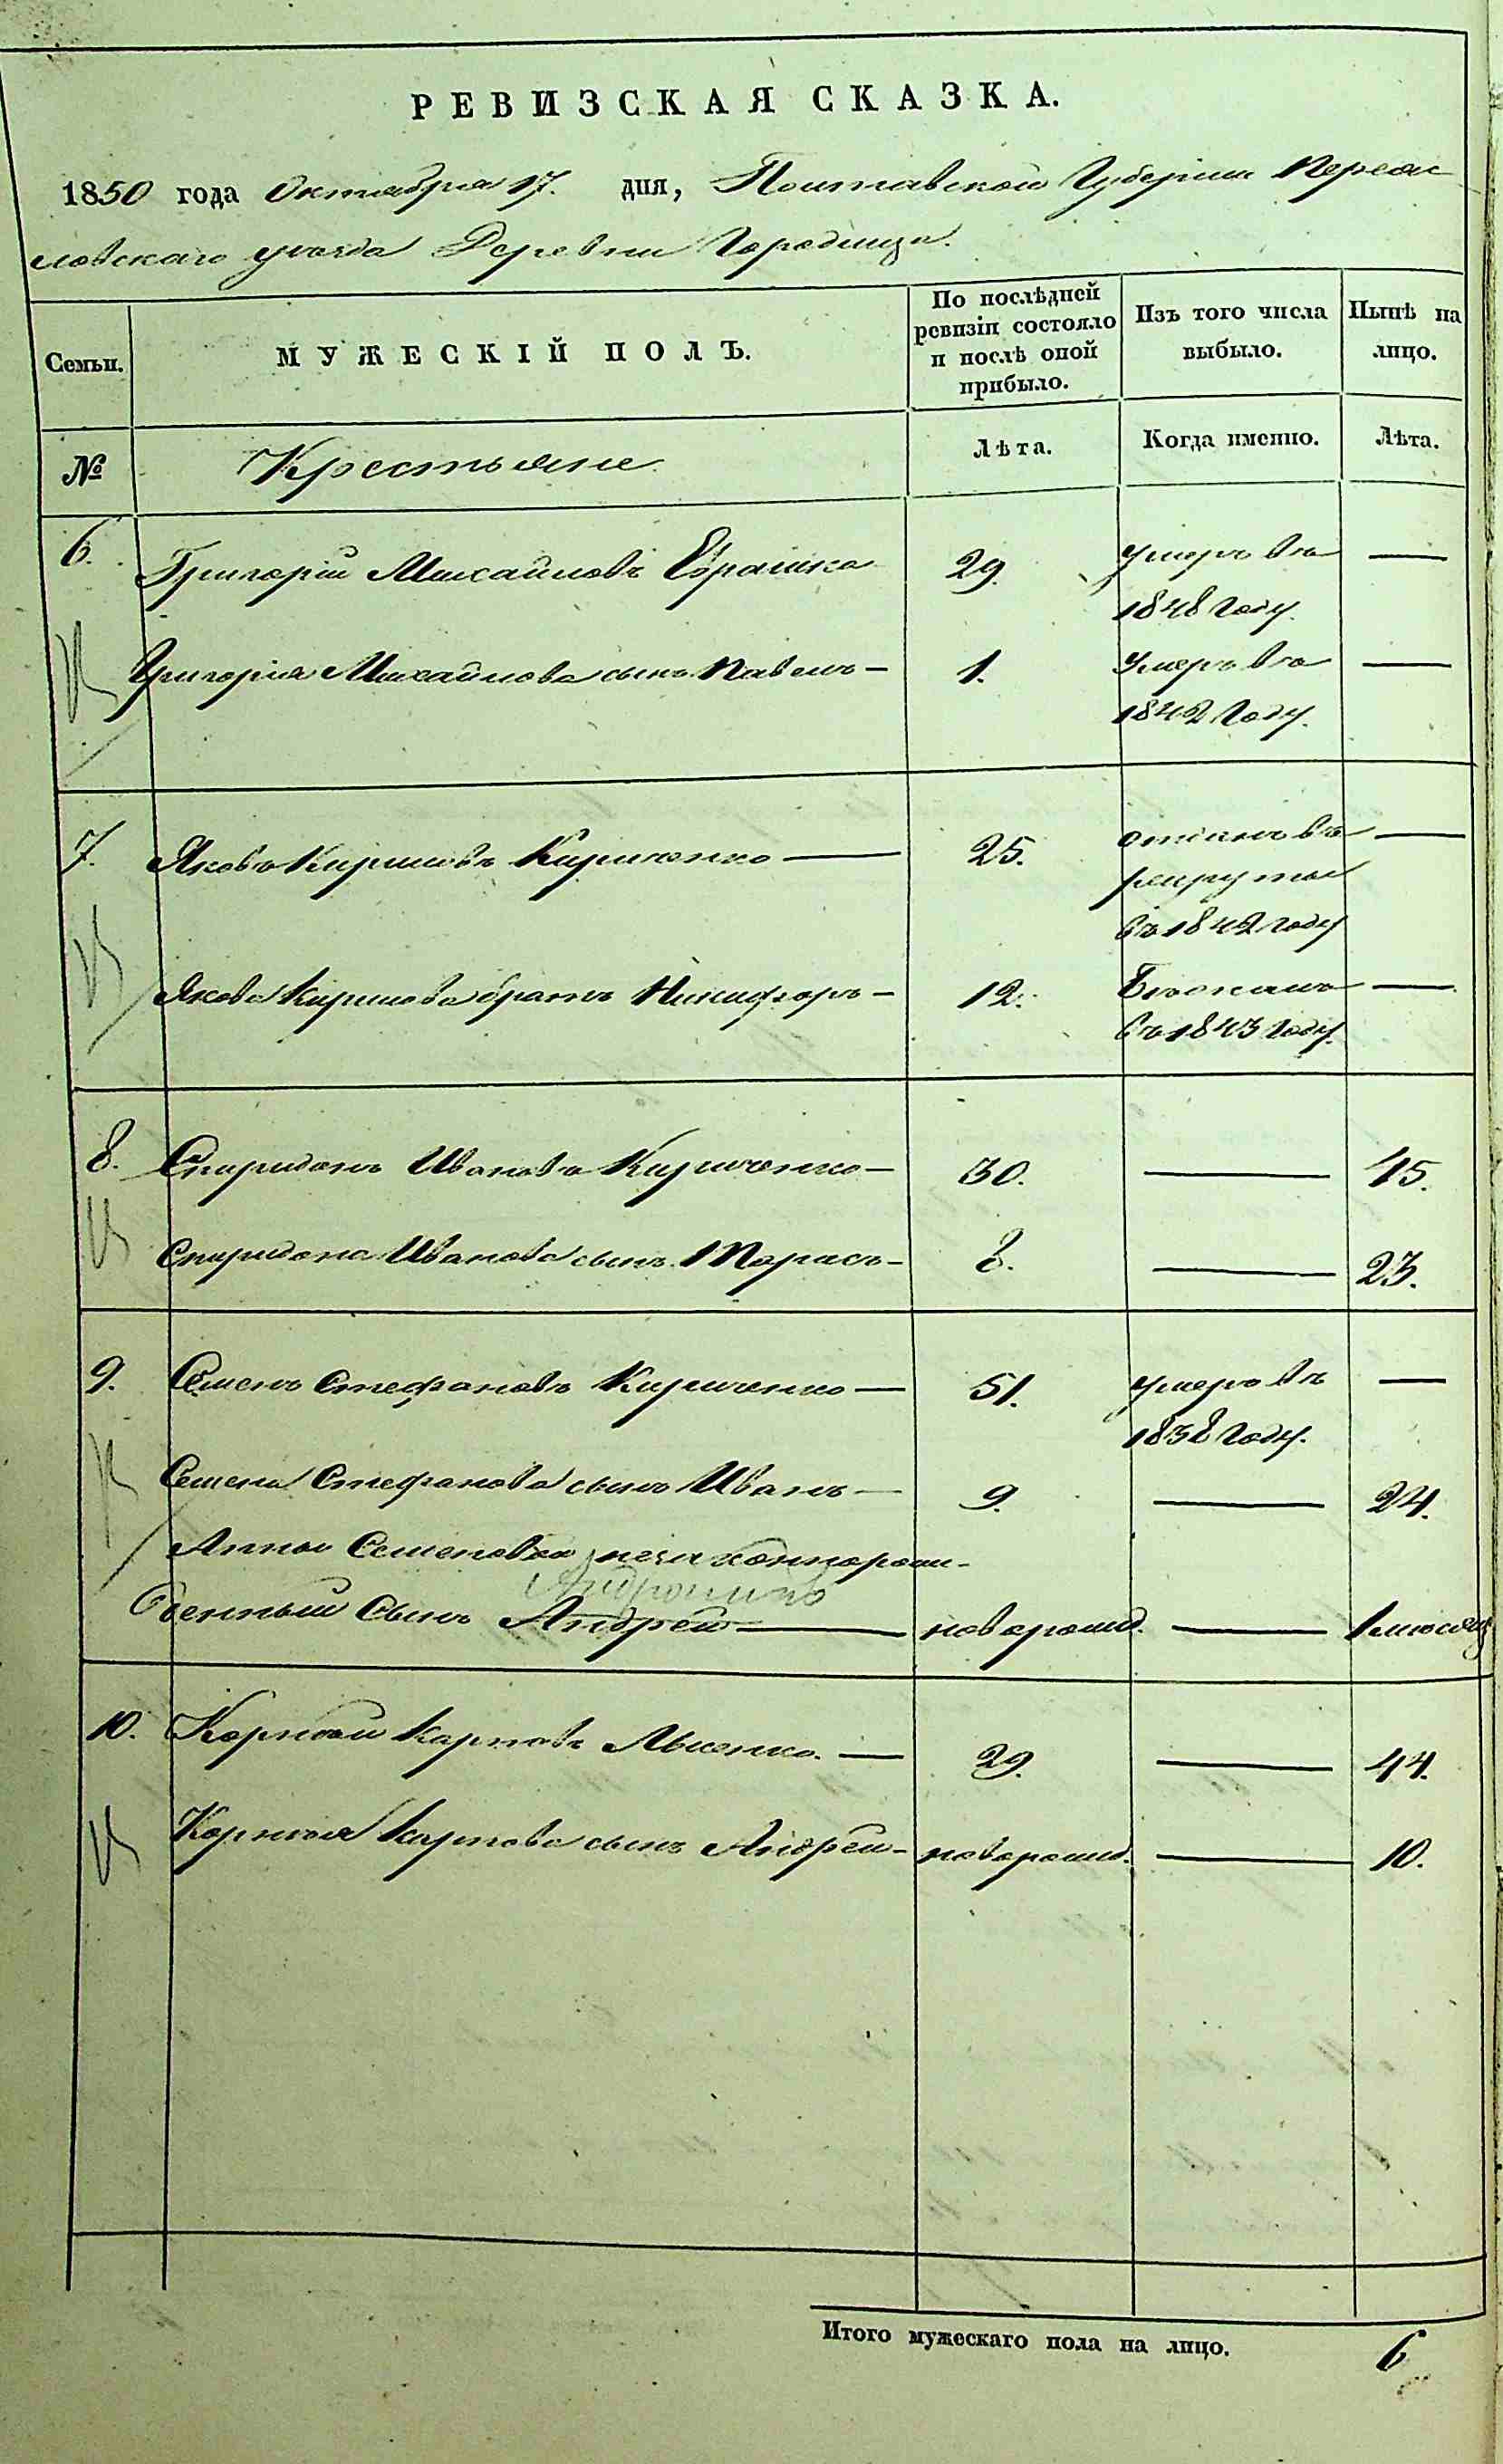 РЕВИЗСКАЯ СКАЗКА.
1850 года Октября 17. дня, Полтавской Губернии Переяс
ловскаго уѣзда Деревни Городища.
Семьи.
МУЖЕСКІЙ ПОЛЪ.
По послѣдней ревизіи состояло и послѣ оной прибыло.
Изъ того числа выбыло.
Нынѣ на лицо.
№
Крестьяне
Лѣта.
Когда именно.
Лѣта.
6. Григорій Михайловъ 29. умеръ въ —
1848 году.
Григорія Михайлова сынъ Павелъ — 1. умеръ въ —
1842 году.
7. Яковъ Кириловъ Кириченко — 25. отданъ въ —
рекруты
въ 1842 году
Якова Кирилова братъ Никифоръ — 12. Бѣжалъ —
въ 1843 году.
8. Спиридонъ Ивановъ Кириченко — 30. — 45.
Спиридона Иванова сынъ Тарасъ — 8. — 23.
9. Семенъ Стефановъ Кириченко — 51. умеръ въ —
1838 году.
Семена Стефанова сынъ Иванъ — 9. — 24.
Анны Семеновой незаконнорож-
денный сынъ Андрей — новорожд. — 1 мѣсяц
Андроникъ
10. Корней Карповъ Лысенко. — 29. — 44.
Корнея Карпова сынъ Андрей — новорожд. — 10.
Итого мужескаго пола на лицо. 6